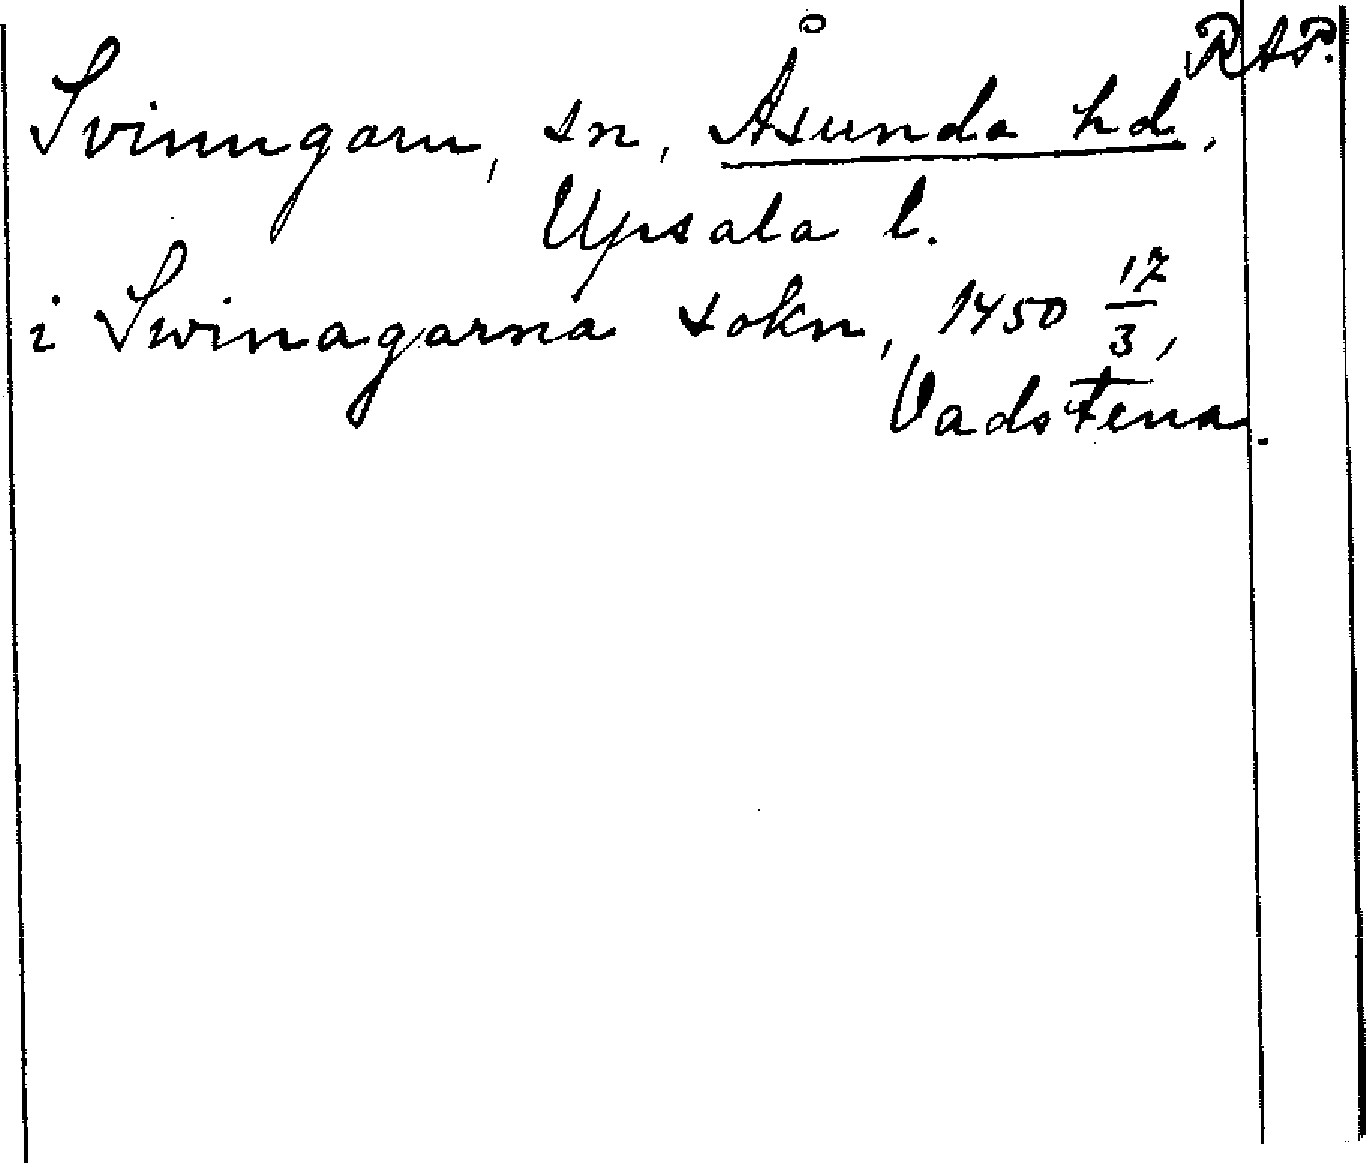 RAP.
Svinngarn, sn, Åsunda hd,
Upsala l.
i Swinagarna sokn, 1450 17/3,
Vadstena.